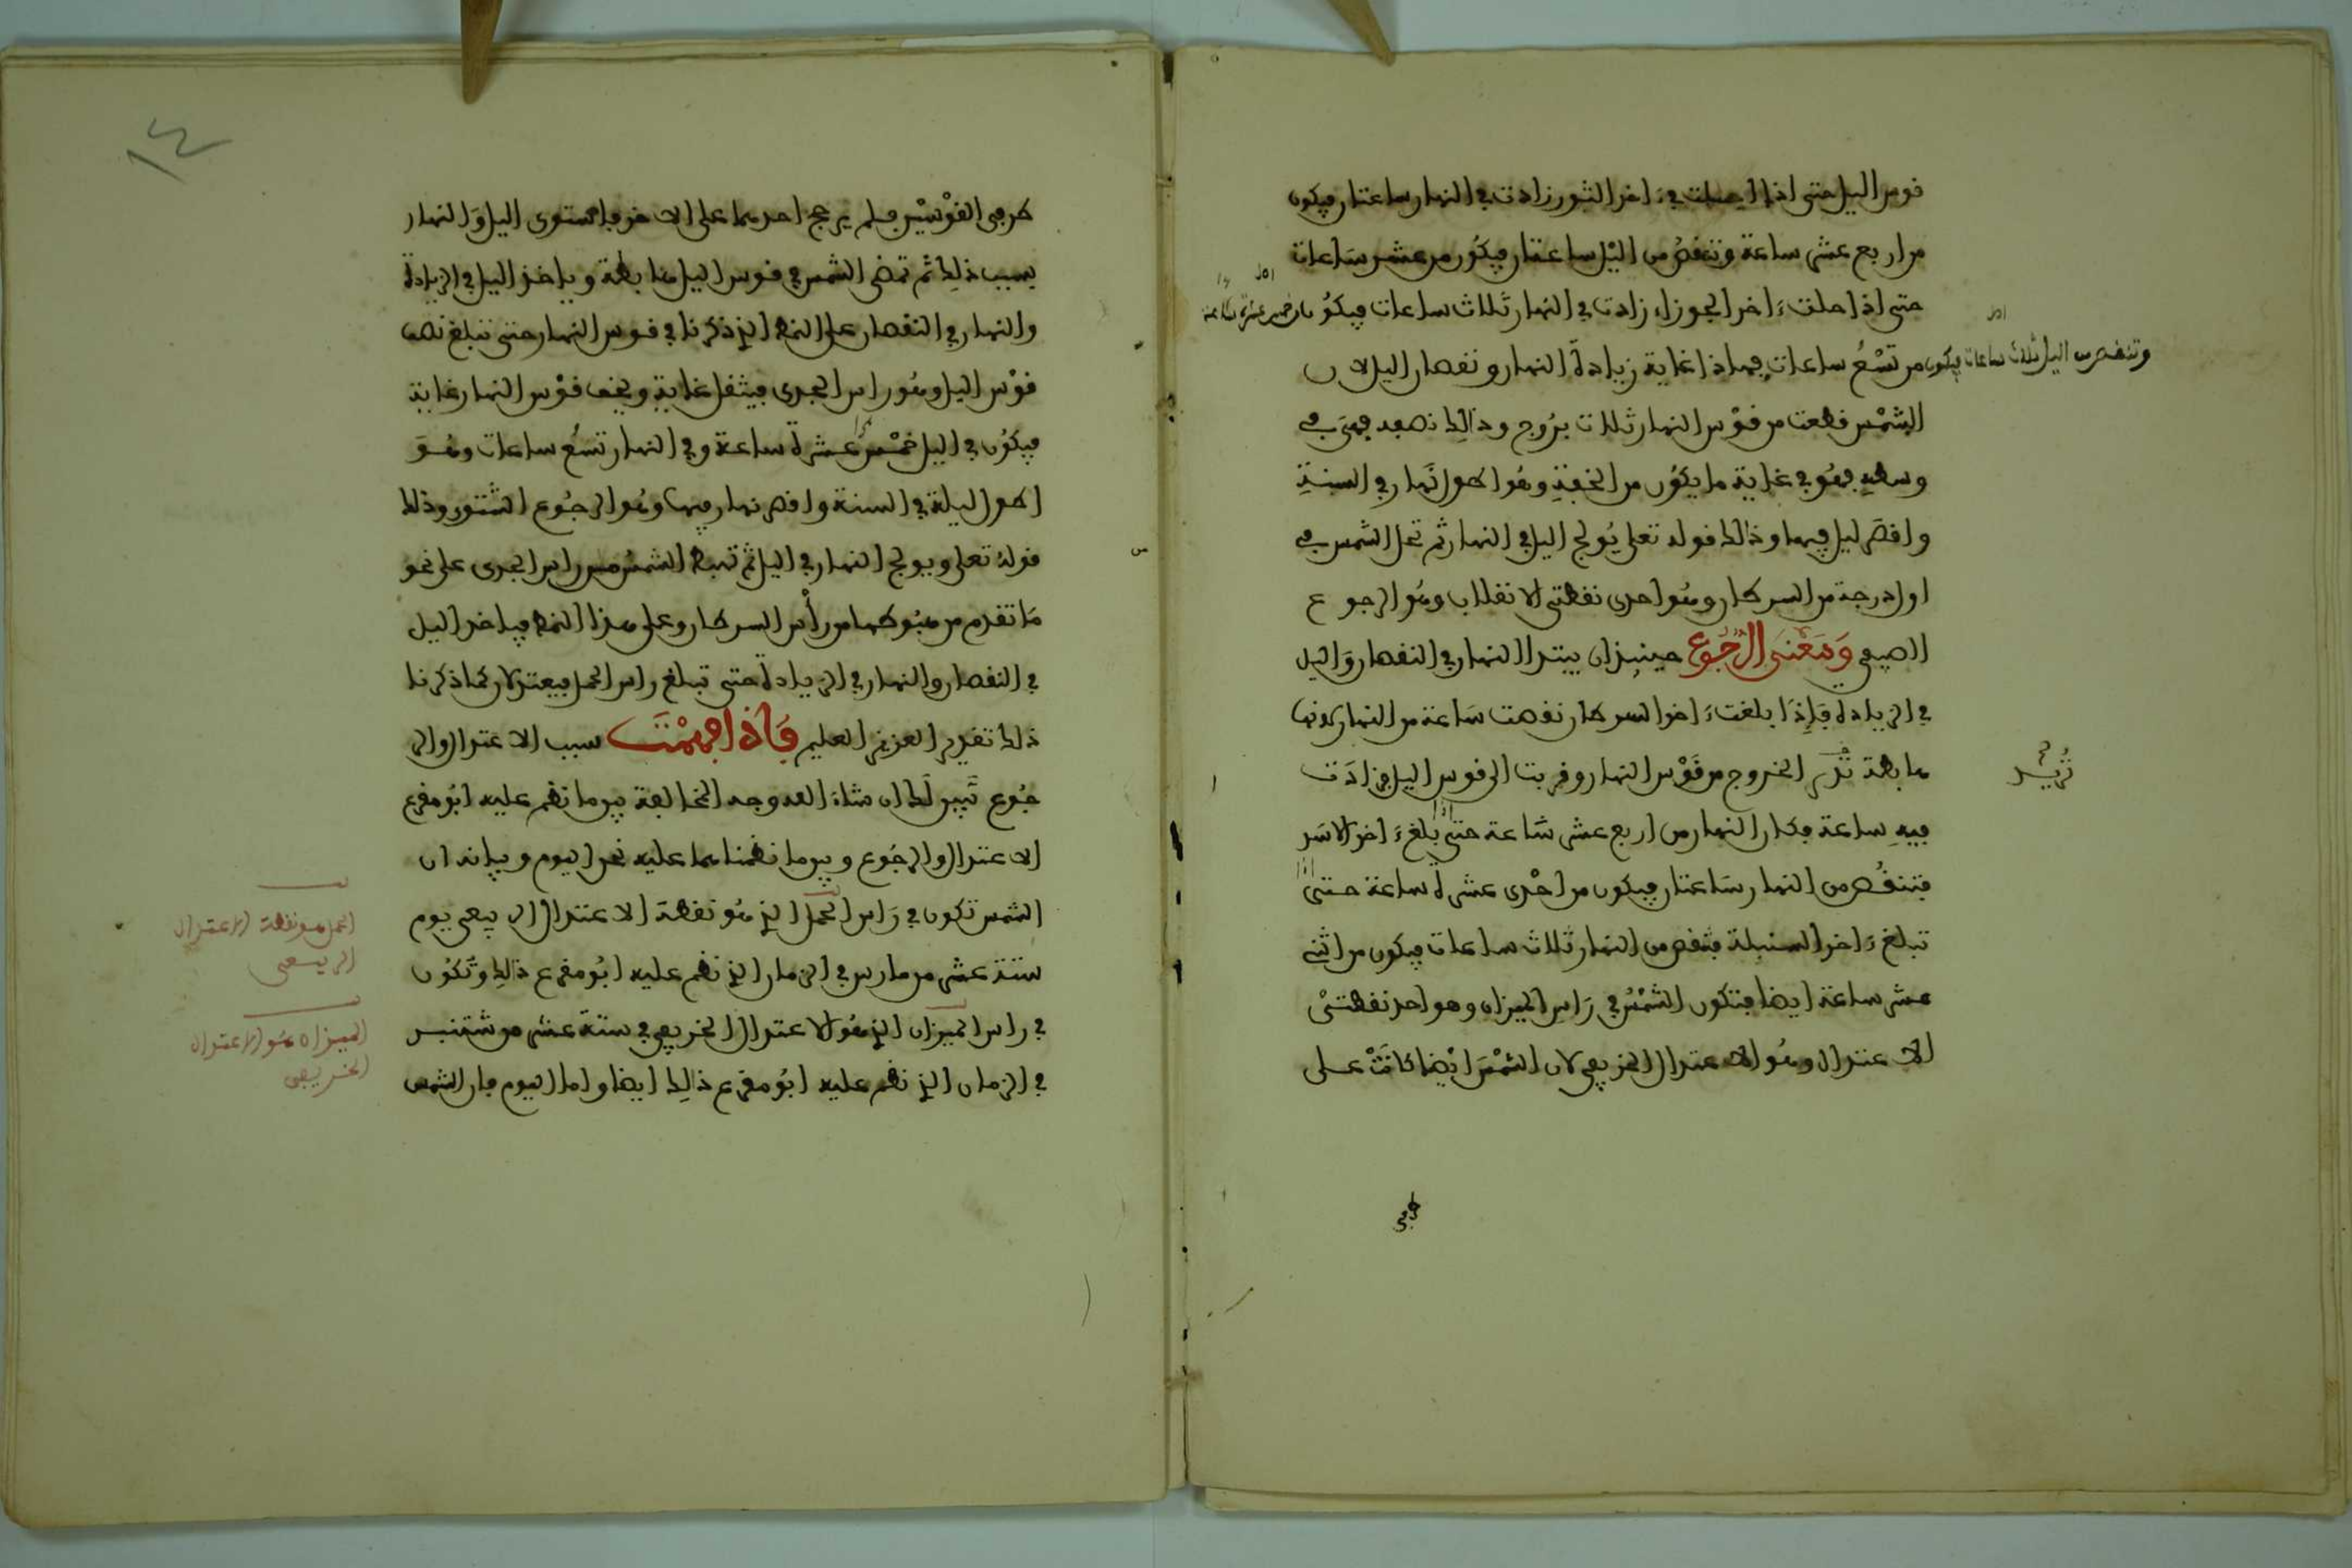 قوس اليل حتى اذا حلت في ءاخر الثور زادت في النهار ساعتان فيكون
من اربع عشر ساعة وتنقص من اليل ساعتان فيكون من عشر ساعات
حتى اذا حلت ءاخر الجوزاء زادت في النهار ثلاث ساعات فيكون من خمس عشرة ساعة
وتنقص من اليل ثلاث ساعات فيكون من تسع ساعات فهاذا غاية زيادة النهار ونقصان اليل لان
الشمس قطعت من قوس النهار ثلاث بروج وذالك نصفه فهي في
وسطه فهو في غاية ما يكون من الخفة وهو اطول نهار في السنة
واقصر ليل فيها وذالك قوله تعلى يولج اليل في النهار ثم تحل الشمس في
اول درجة من السرطان وهو احدى نقطتي الانقلاب وهو الرجوع
الصيفي وَمَعْنَى الرُّجُوع حينيذ ان يبتدا النهار في النقصان واليل
في الزيادة فإذا بلغت ءاخر السرطان نقصت ساعة من النهار لانها
هابطة تريد الخروج من قوس النهار وقربت الى قوس اليل فزادت
تريد
فيه ساعة فكان النهار من اربع عشر ساعة حتى اذا بلغ ءاخر الاسد
فتنقص من النهار ساعتان فيكون من احدى عشرة ساعة حتى اذا
تبلغ ءاخر السنبلة فتنقص من النهار ثلاث ساعات فيكون من اثني
عشر ساعة ايضا فتكون الشمس في راس الميزان وهو احد نقطتي
الاعتدال وهو الاعتدال الخريفي لان الشمس ايضا كانت على
طرفي
١٤
طرفي القوسين فلم يرجح احدهما على الاخر فاستوى اليل والنهار
بسبب ذلك ثم تمضي الشمس في قوس اليل هابطة وياخذ اليل في الزيادة
والنهار في النقصان على النمط الذي ذكرنا في قوس النهار حتى تبلغ نصف
قوس اليل وهو راس الجدي فيثقل غاية ويخف قوس النهار غاية
فيكون في اليل خمس عشرة ساعة وفي النهار تسع ساعات وهو
اطول ليلة في السنة واقصر نهار فيها وهو الرجوع الشتوي وذلك
قوله تعلى ويولج النهار في اليل ثم تهبط الشمس من راس الجدي على نحو
ما تقدم من هبوطها من رأس السرطان وعلى هذا النمط فياخذ اليل
في النقصان والنهار في الزيادة حتى تبلغ راس الحمل فيعتدلان كما ذكرنا
ذلك تقدير العزيز العليم فَإذا فهمْتَ سبب الاعتدال والر
جوع تبين لك ان شاء الله وجه المخالفة بين ما نظم عليه ابو مقرع
الاعتدال والرجوع وبين ما نظمناهما عليه نحن اليوم وبيانه ان
الشمس تكون في راس الحمل الذي هو نقطة الاعتدال الربيعي يوم
ستة عشر من مارس في الزمان الذي نظم عليه ابو مقرع ذالك وتكون
في راس الميزان الذي هو الاعتدال الخريفي في ستة عشر من شتنبر
في الزمان الذي نظم عليه ابو مقرع ذالك ايضا واما اليوم فان الشمس
الحمل هو نقطة الاعتدال
الربيعي
الميزان هو الاعتدال
الخريفي